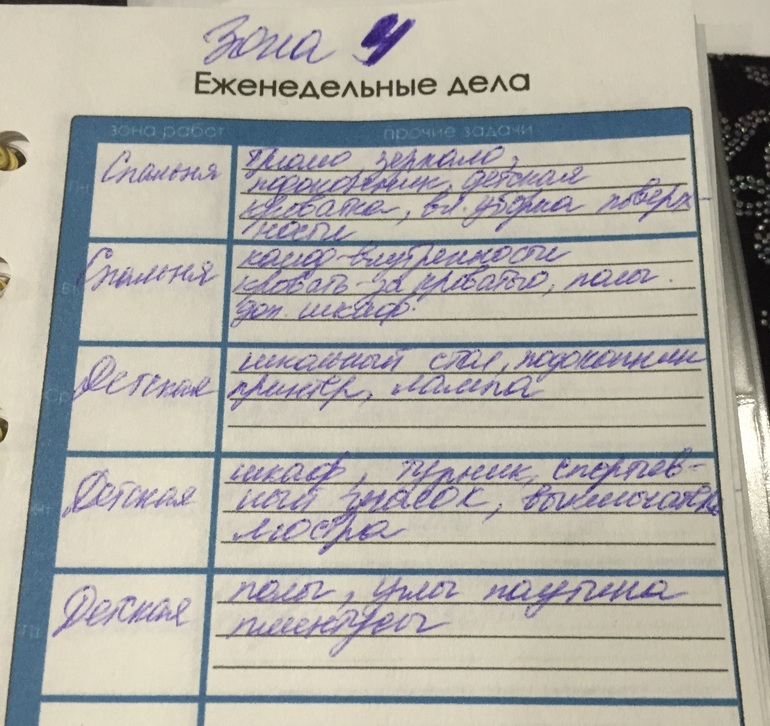 Зона 4
Еженедельные дела
зона работ
прочие задачи
Спальня
трюмо, зеркало,
подоконник, детская
кроватка, вл. уборка поверх-
ности
Спальня
комод-внутренности
кровать-за кроватью, полы.
доп. шкаф.
Детская
школьный стол, подоконник
принтер, лампа
Детская
шкаф, турник, спортив-
ный уголок, выключатель
люстра
Детская
полы, углы паутина
плинтусы